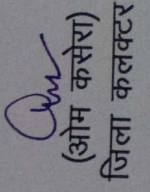 (ओम कसेरा)
जिला कलक्टर